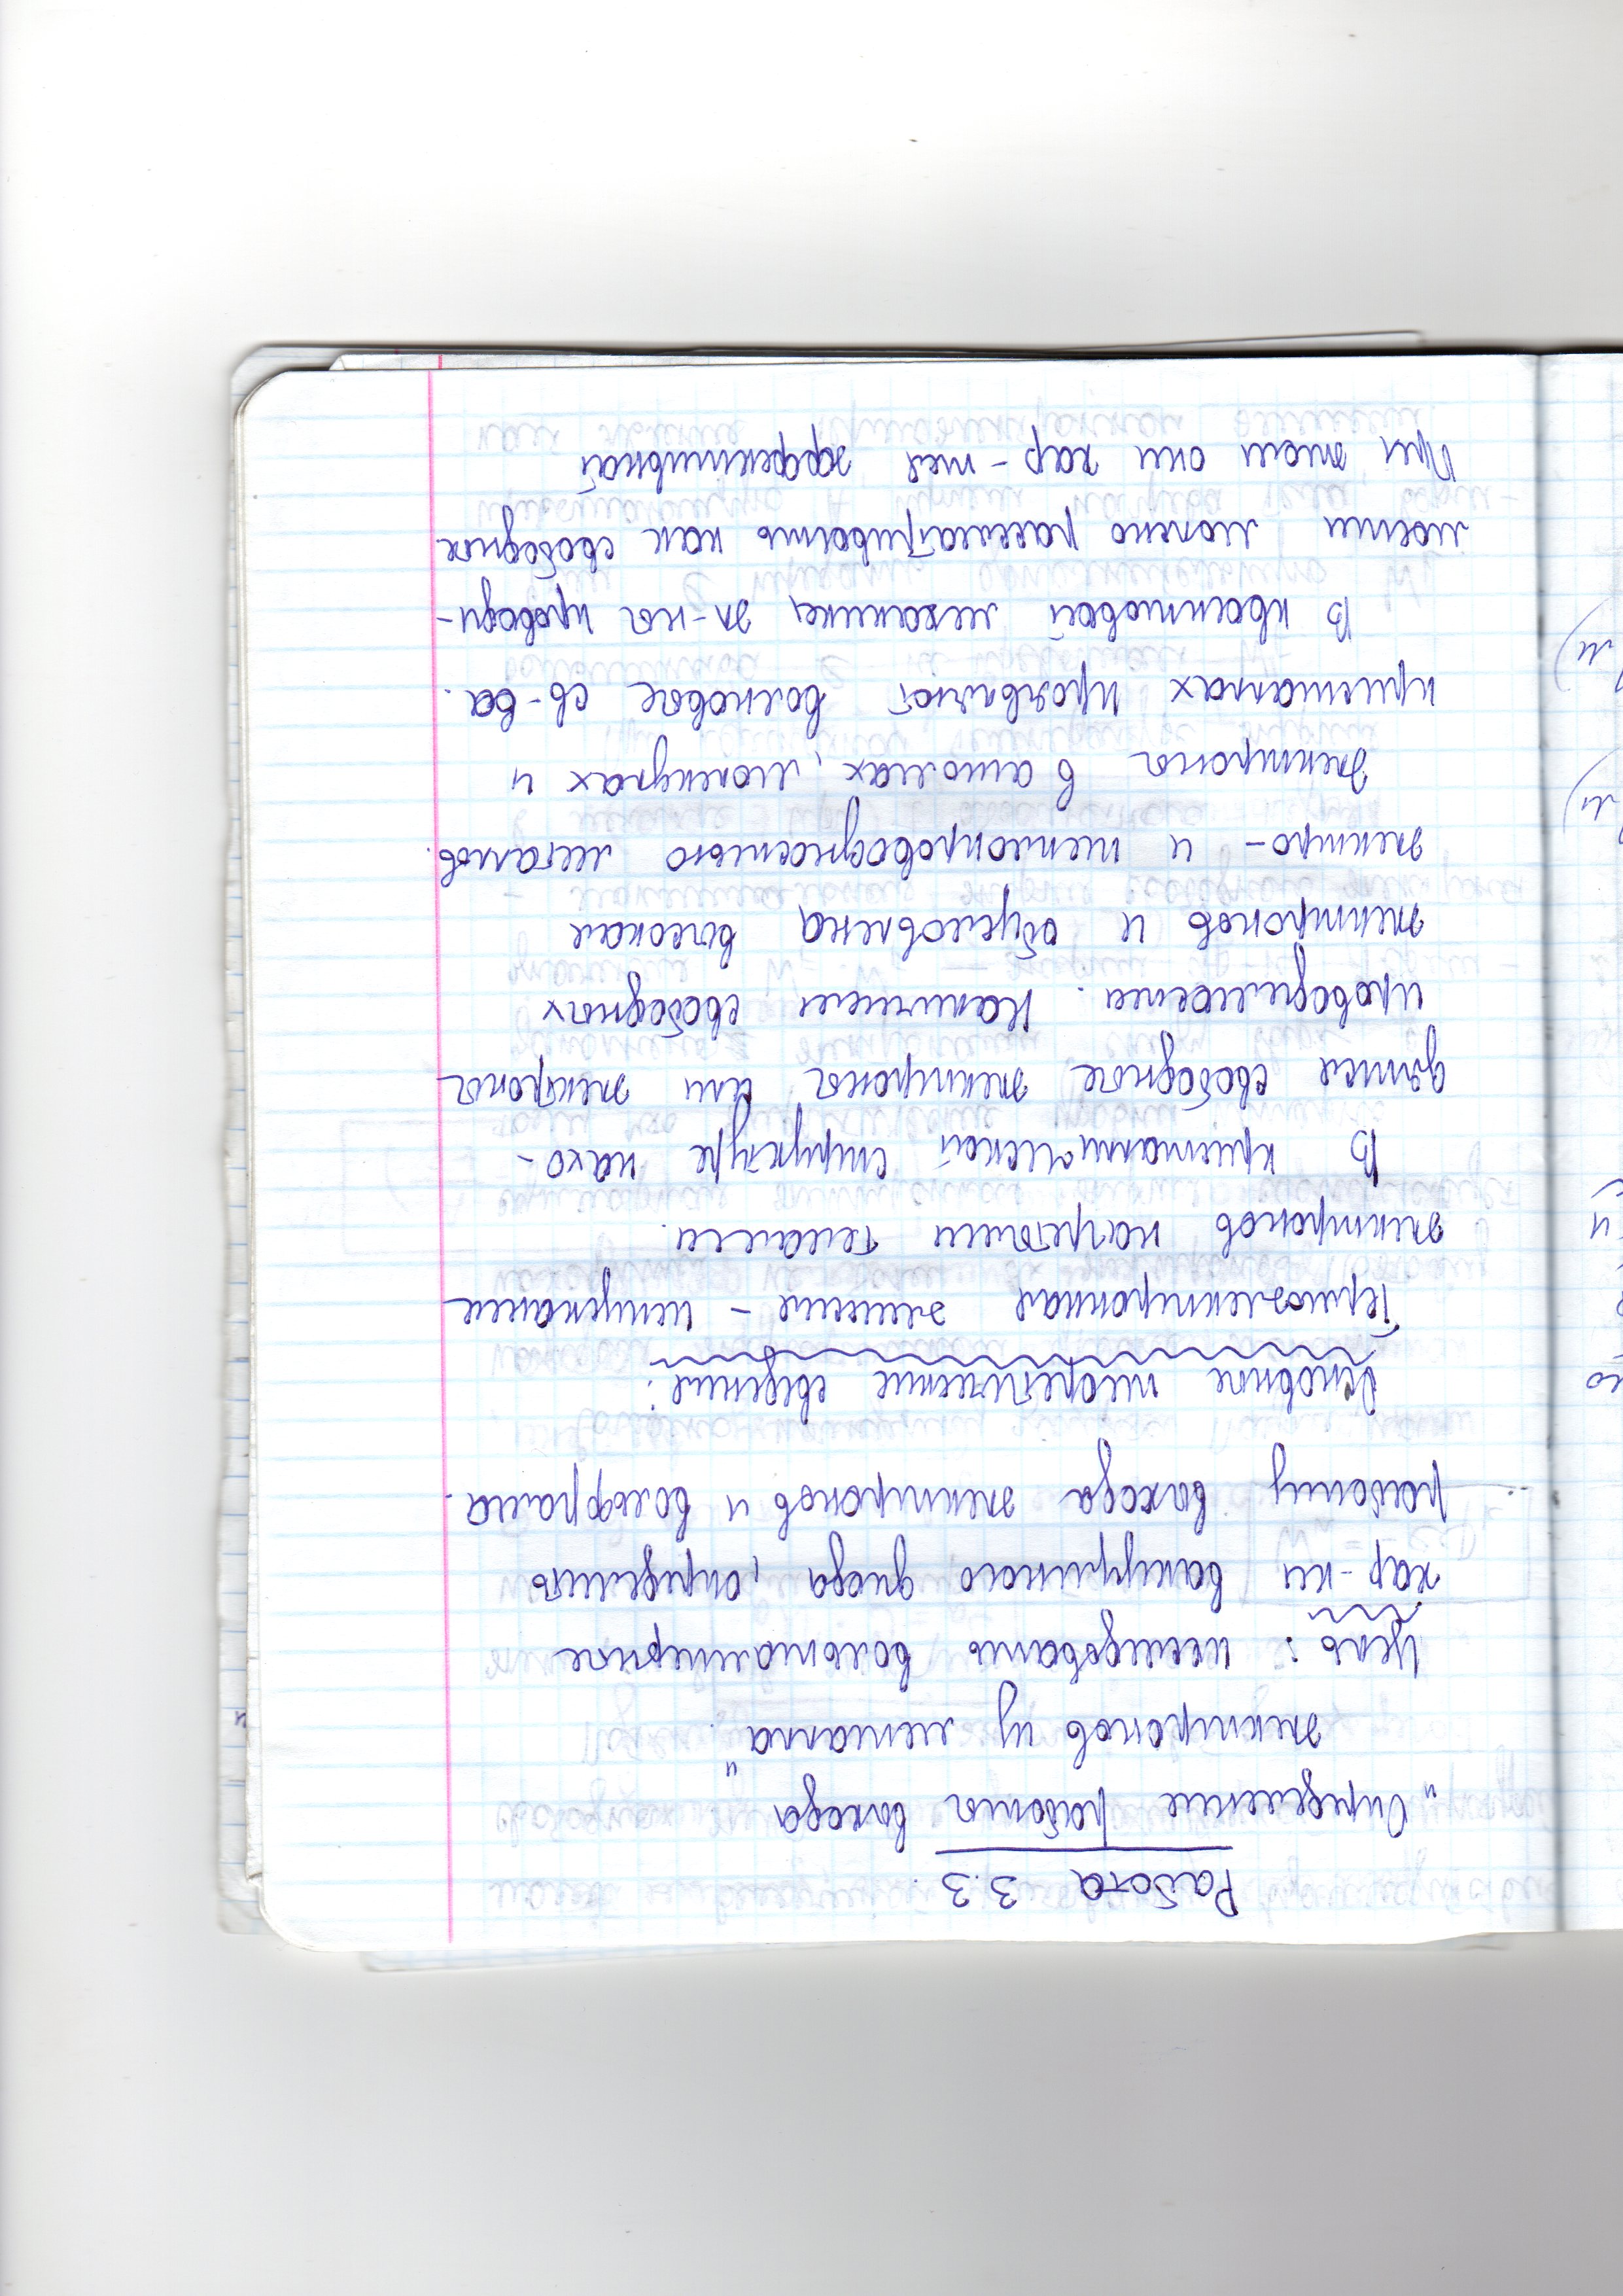 Работа 3.3.
„Определение работы выхода
электронов из металла".
Цель: исследовать вольтамперные
хар-ки вакуумного диода, определить
работу выхода электронов и вольфрама.
Основные теоретические сведения:
Термоэлектронная эмиссия – испускание
электронов нагретыми телами.
В кристаллической структуре нахо-
дятся свободные электроны или электроны
проводимости. Наличием свободных
электронов и обусловлена высокая
электро- и теплопроводностью металлов.
Электроны в атомах, молекулах и
кристаллах проявляют волновые св-ва.
В квантовой механика эл-ны проводи-
мости можно рассматривать как свободные.
При этом они хар-тся эффективной